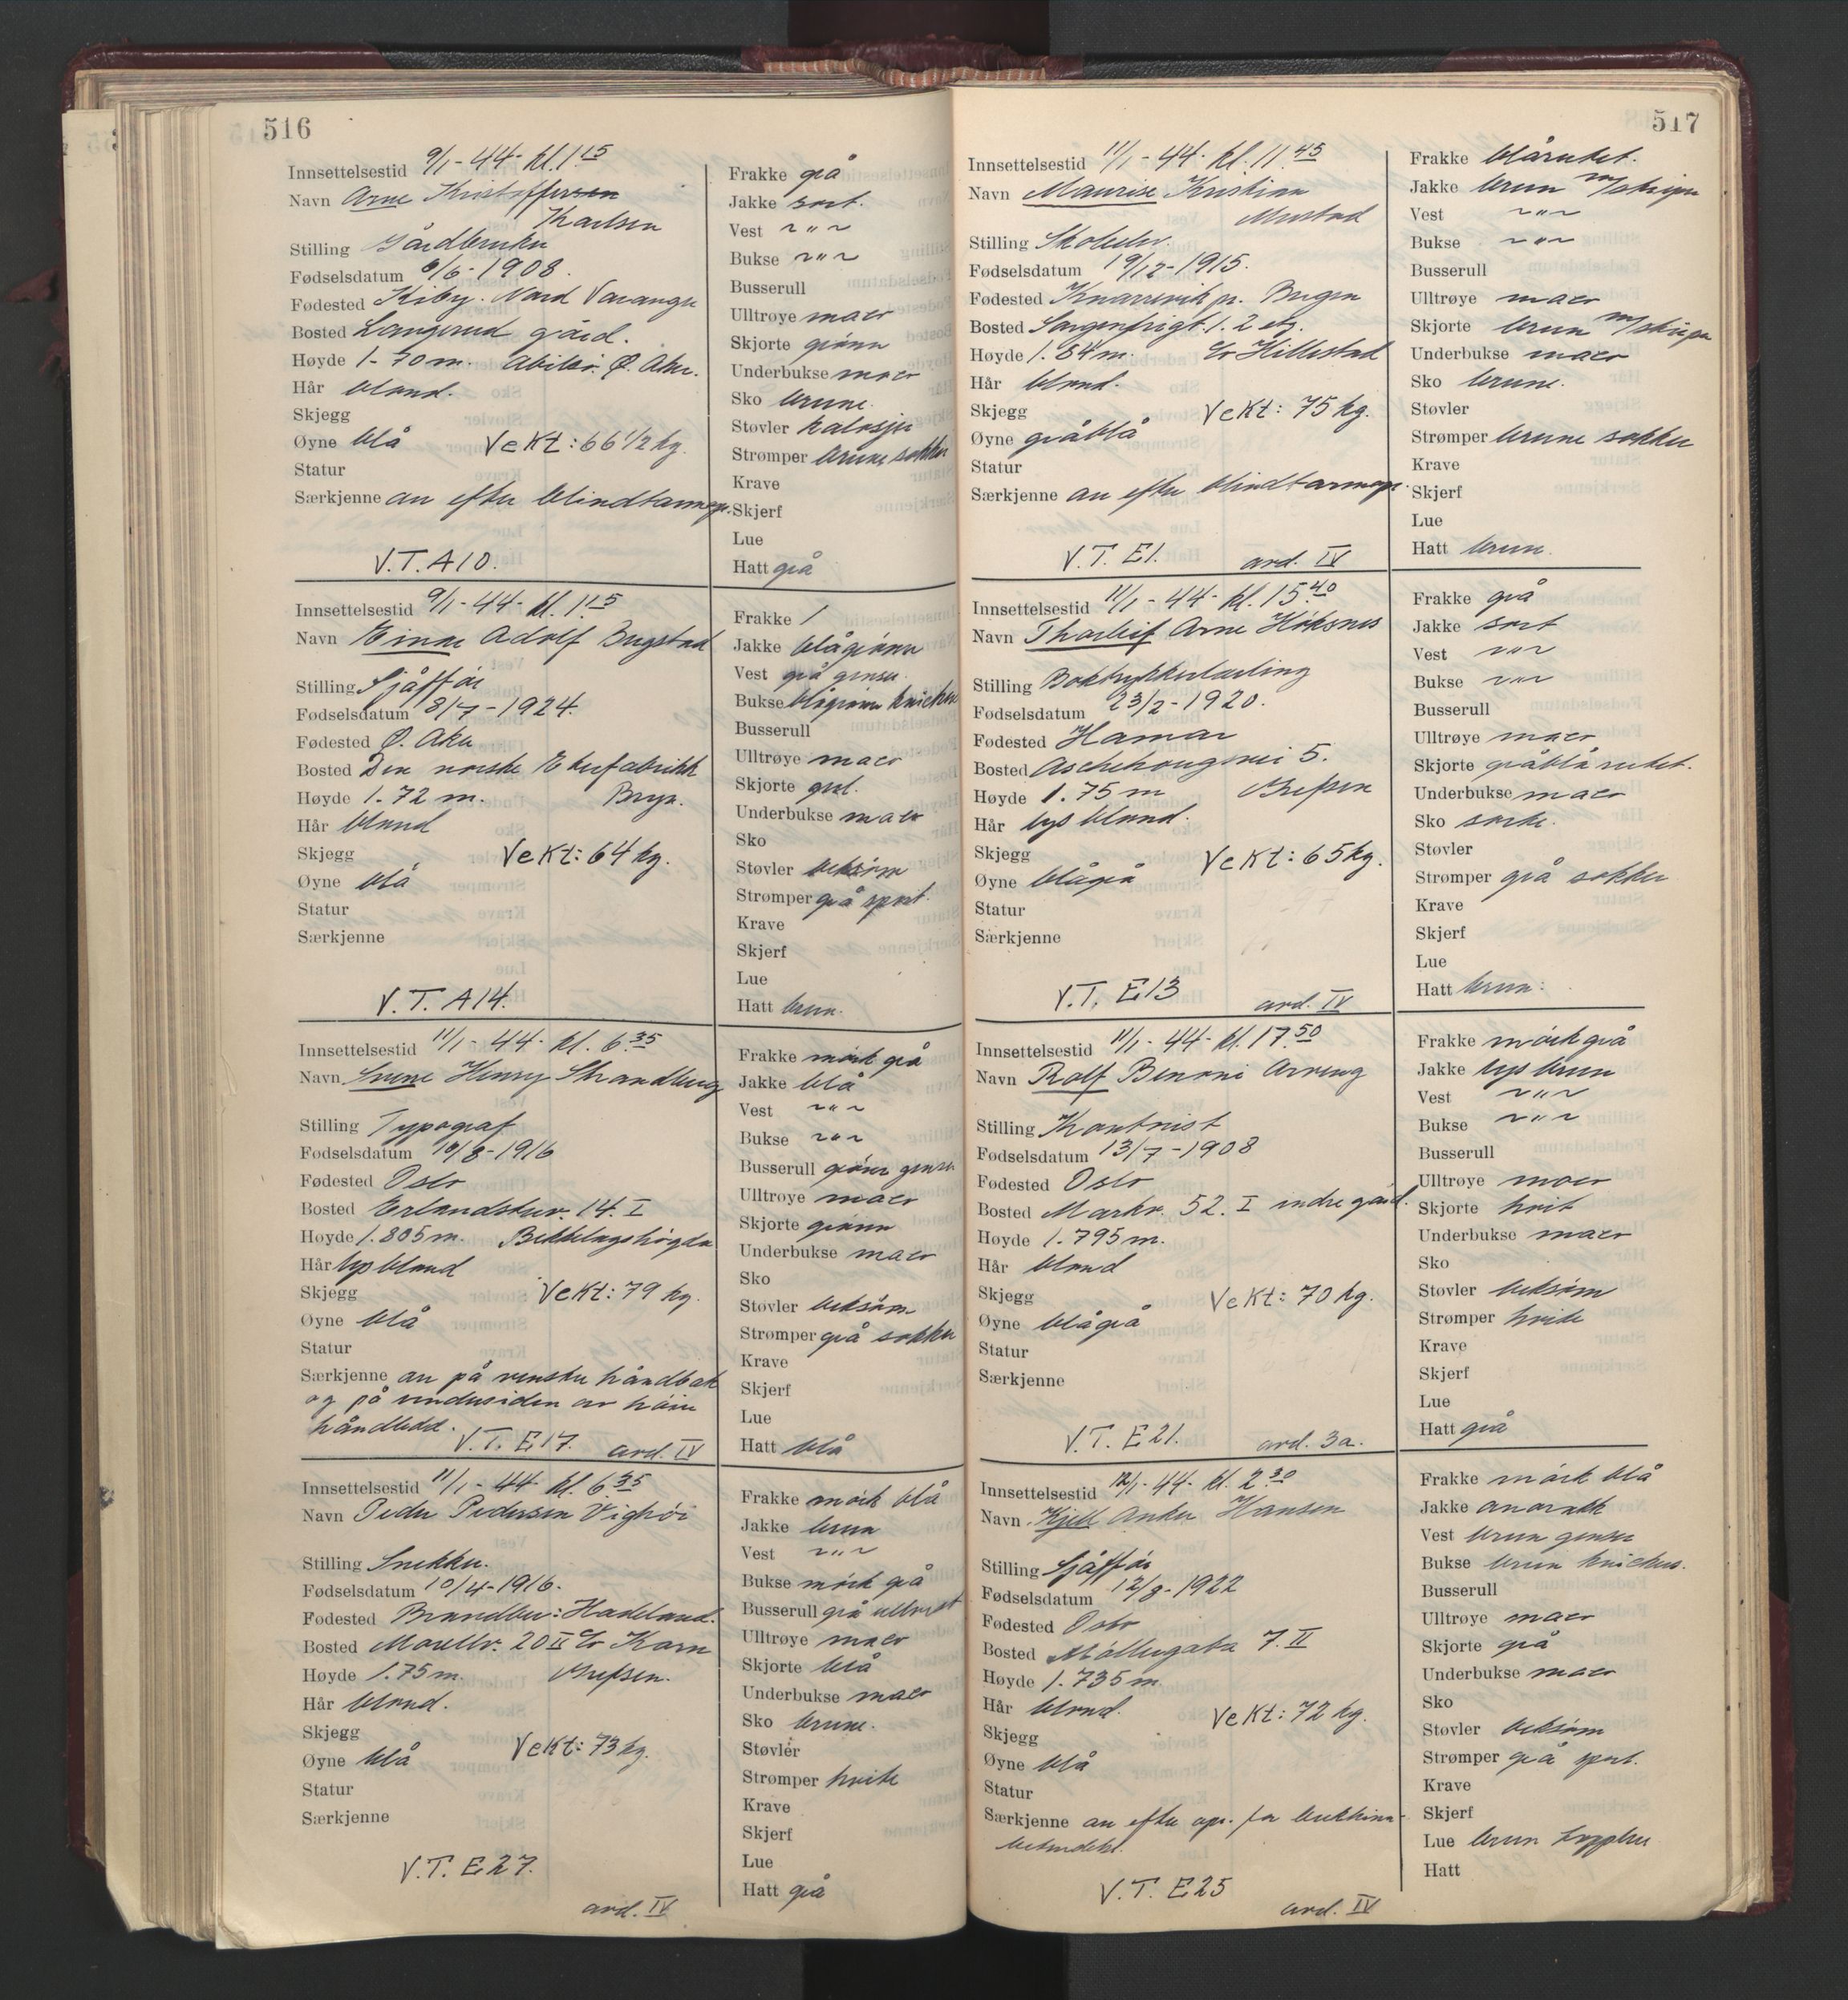 516
Innsettelsestid 9/1-44- kl. 1 15
Navn Arne Kristoffersen
Karlsen
Stilling Gårdbruker
Fødselsdatum 6/6-1908.
Fødested Kiby. Nord Varanger
Bosted Langerud gård.
Høyde 1-70 m. Abildsø. Ø. Aker.
Hår blond.
Skjegg
Øyne blå Vekt: 66 1/2 kg.
Statur
Særkjenne arr efter blindtarmop.
V.T. A10.
Frakke grå
Jakke sort.
Vest ~"~
Bukse ~"~
Busserull
Ulltrøye maco
Skjorte grønn
Underbukse maco
Sko brune.
Støvler kalosjer
Strømper brune sokker
Krave
Skjerf
Lue
Hatt grå
Innsettelsestid 9/1-44- kl. 1 15
Navn Einar Adolf Bugstad
Stilling Sjåffør
Fødselsdatum 8/7-1924.
Fødested Ø. Aker
Bosted Den norske Eterfabrikk
Høyde 1.72 m. Bryn.
Hår blond
Skjegg Vekt: 64 kg.
Øyne blå
Statur
Særkjenne
V.T. A14.
Frakke /
Jakke blågrønn
Vest grå genser
Bukse blågrønn knickers
Busserull
Ulltrøye maco
Skjorte gul.
Underbukse maco
Sko
Støvler beksøm
Strømper grå sport.
Krave
Skjerf
Lue
Hatt brun.
Innsettelsestid 11/1-44- kl. 6.35
Navn Henry Strandberg
Stilling Typograf
Fødselsdatum 10/8-1916
Fødested Oslo
Bosted Erlandstuv. 14. I
Høyde 1.805 m. Bekkelagshøgda
Hår lys blond
Skjegg Vekt: 79 kg.
Øyne blå
Statur
Særkjenne arr på venstre håndbak
og på undersiden av høire
håndledd. V.T. E17. avd. IV
Frakke mørk grå
Jakke blå
Vest ~"~
Bukse ~"~
Busserull grønn genser
Ulltrøye maco
Skjorte grønn
Underbukse maco
Sko
Støvler beksøm
Strømper grå sokker
Krave
Skjerf
Lue
Hatt blå
Innsettelsestid 11/1-44- kl. 6.35
Navn Peder Pedersen Vighøi
Stilling Snekker.
Fødselsdatum 10/4-1916.
Fødested Brandbu: Hadeland.
Bosted Morellv. 20 II c/o Korn
Høyde 1.75 m. Grefsen.
Hår blond.
Skjegg
Øyne blå Vekt: 73 kg.
Statur
Særkjenne
V.T. E27.
avd. IV
Frakke mørk blå
Jakke brun
Vest ~"~
Bukse mørk grå
Busserull grå ullvest
Ulltrøye maco
Skjorte blå
Underbukse maco
Sko brune.
Støvler
Strømper hvite
Krave
Skjerf
Lue
Hatt grå
517
Innsettelsestid 11/1-44- kl. 11.45
Navn Maurise Kristian
Mustad
Stilling
Fødselsdatum 19/12-1915.
Fødested Knarrevik pr. Bergen
Bosted Sorgenfrigt. 1. 2 etg.
Høyde 1.84 m. c/o Hillestad
Hår blond.
Skjegg Vekt: 75 kg.
Øyne gråblå
Statur
Særkjenne arr efter blindtarmop.
V.T. E1. avd. IV
Frakke blårutet.
Jakke brun m/striper
Vest ~"~
Bukse ~"~
Busserull
Ulltrøye maco
Skjorte brun m/striper
Underbukse maco
Sko brune.
Støvler
Strømper brune sokker
Krave
Skjerf
Lue
Hatt brun.
Innsettelsestid 11/1-44- kl. 15.40
Navn Thorleif Arne Höksnes
Stilling Boktrykkerlærling
Fødselsdatum 23/2-1920.
Fødested Hamar
Bosted Aschehougsvei 5.
Høyde 1.75 m Grefsen
Hår lys blond.
Skjegg Vekt: 65 kg.
Øyne blågrå
Statur
Særkjenne
V.T. E13 avd. IV
Frakke grå
Jakke sort
Vest ~"~
Bukse ~"~
Busserull
Ulltrøye maco
Skjorte gråblå rutet.
Underbukse maco
Sko sorte.
Støvler
Strømper grå sokker
Krave
Skjerf
Lue
Hatt brun.
Innsettelsestid 11/1-44- kl. 17.50
Navn Rolf Benoni Arveng
Stilling Kontorist
Fødselsdatum 13/7-1908
Fødested Oslo
Bosted Markv. 52. I indre gård.
Høyde 1.795 m.
Hår blond
Skjegg Vekt: 70 kg.
Øyne blågrå
Statur
Særkjenne
V.T. E21. avd. 3a.
Frakke mørk grå
Jakke lys brun
Vest ~"~
Bukse ~"~
Busserull
Ulltrøye maco
Skjorte hvit
Underbukse maco
Sko
Støvler beksøm
Strømper hvite
Krave
Skjerf
Lue
Hatt grå
Innsettelsestid 12/1-44- kl. 2.30
Navn Kjell Anker Hansen
Stilling Sjåffør
Fødselsdatum 12/8-1922
Fødested Oslo
Bosted Møllergata 7. II
Høyde 1.735 m
Hår blond.
Skjegg Vekt: 72 kg.
Øyne blå
Statur
Særkjenne arr efter opr. for bukhinne-
betendelse.
V.T. E25
avd. IV
Frakke mørk blå
Jakke anorakk
Vest brun genser
Bukse brun knickers.
Busserull
Ulltrøye maco
Skjorte grå
Underbukse maco
Sko
Støvler beksøm
Strømper grå sport.
Krave
Skjerf
Lue brun
Hatt